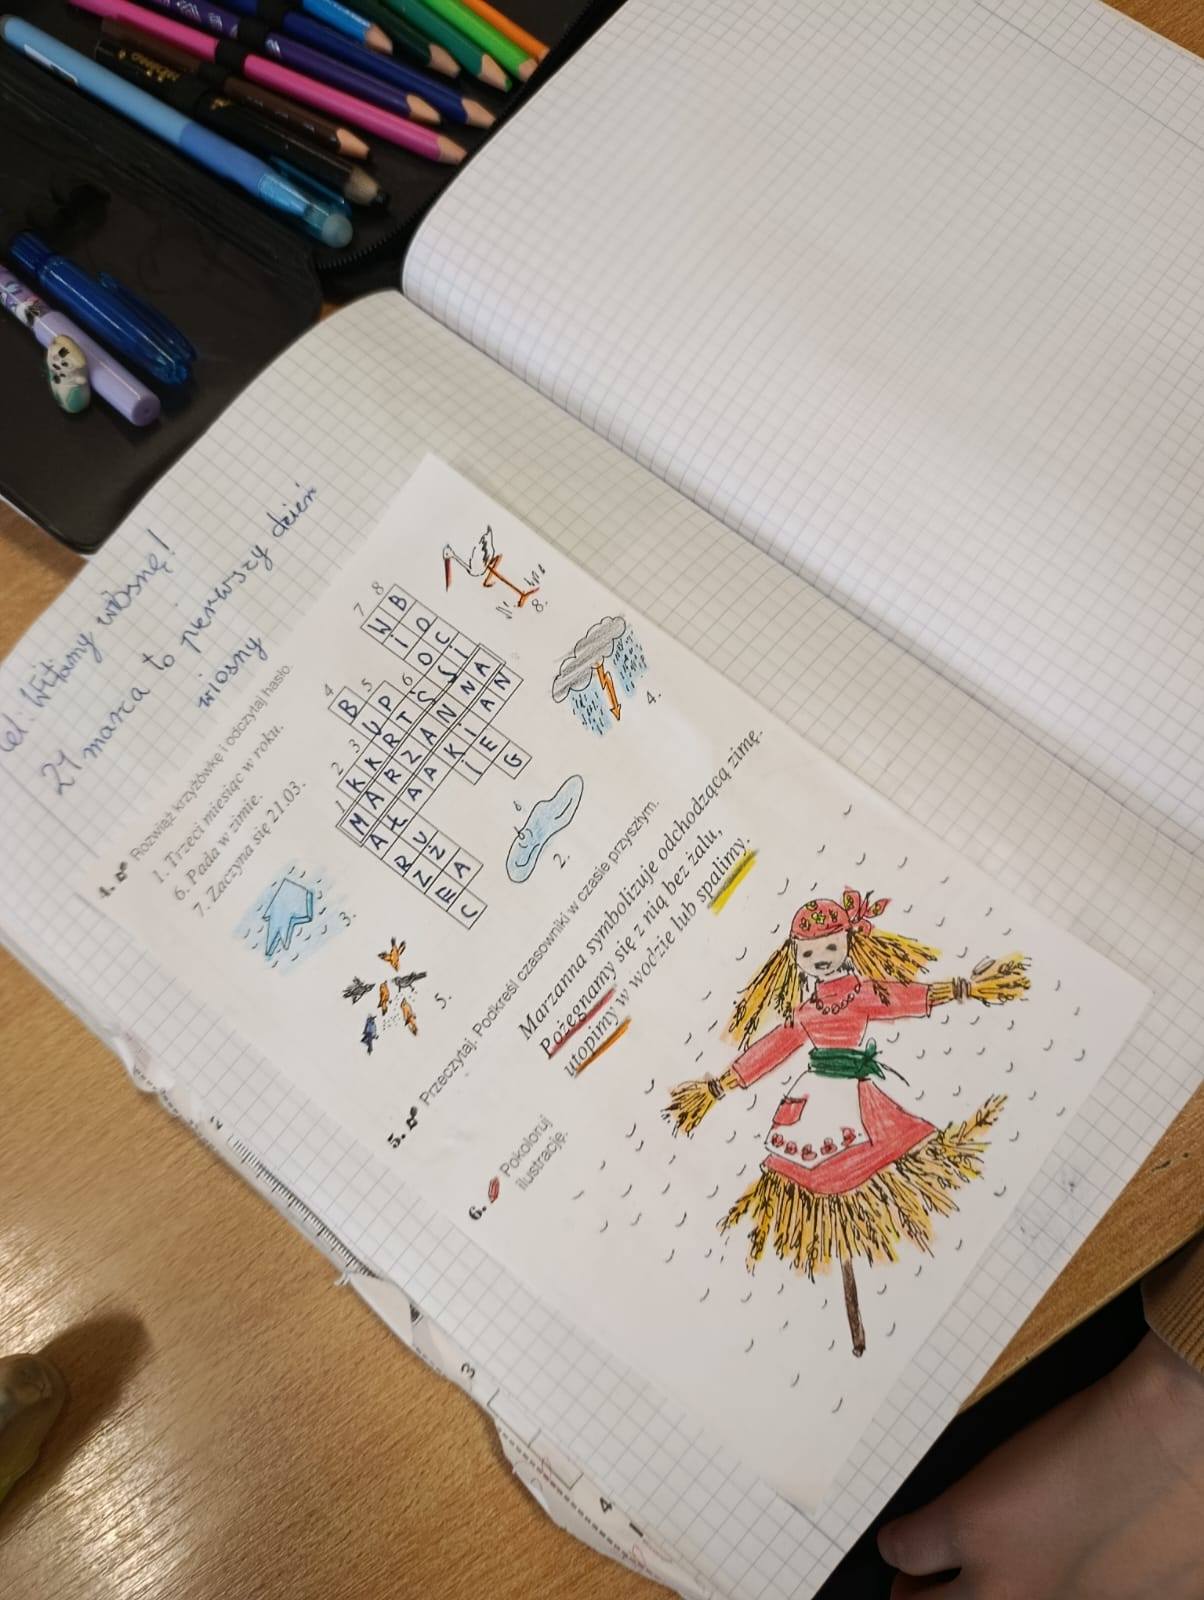 Cel: Witamy wiosnę!
21 marca to pierwszy dzień
wiosny
4. Rozwiąż krzyżówkę i odczytaj hasło.
1. Trzeci miesiąc w roku.
6. Pada w zimie.
7. Zaczyna się 21.03.
3.
5.
1 MARZEC
2 KAŁUŻA
3 KRA
4 BURZA
5 PTAKI
6 ŚNIEG
7 WIOSNA
8 BOCIAN
2.
4.
8.
5. Przeczytaj. Podkreśl czasowniki w czasie przyszłym.
Marzanna symbolizuje odchodzącą zimę.
Pożegnamy się z nią bez żalu,
utopimy w wodzie lub spalimy.
6. Pokoloruj
ilustrację.
2
3
4